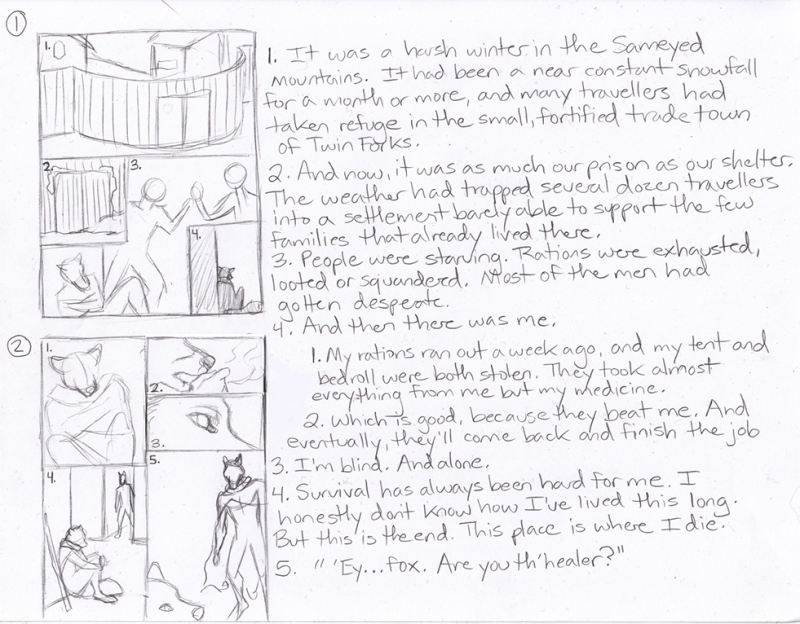 1
1. It was a harsh winter in the Sameyed
mountains. It had been a near constant snowfall
for a month or more, and many travellers had
taken refuge in the small, fortified trade town
of Twin Forks.
2. And now, it was as much our prison as our shelter.
The weather had trapped several dozen travellers
into a settlement barely able to support the few
families that already lived there.
3. People were starving. Rations were exhausted,
looted or squandered. Most of the men had
gotten desperate.
4. And then there was me.
1.
2.
3.
4.
2
1. My rations ran out a week ago, and my tent and
bedroll were both stolen. They took almost
everything from me but my medicine.
2. Which is good, because they beat me. And
eventually, they'll come back and finish the job
3. I'm blind. And alone.
4. Survival has always been hard for me. I
honestly don't know how I've lived this long.
But this is the end. This place is where I die.
5. "'Ey...fox. Are you th'healer?"
1.
2.
3.
4.
5.